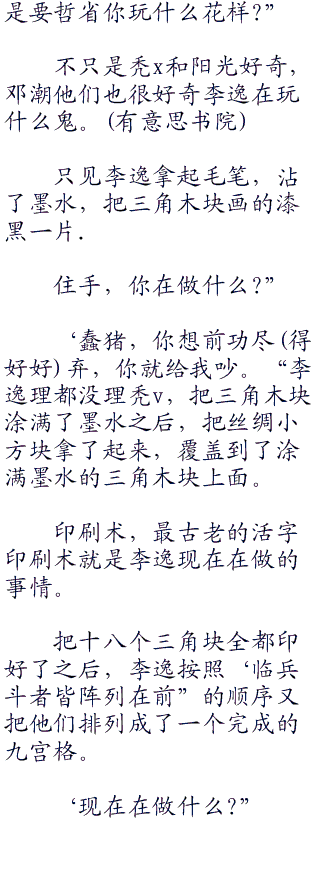 是要哲省你玩什么花样?”
不只是秃x和阳光好奇,
邓潮他们也很好奇李逸在玩
什么鬼。(有意思书院)
只见李逸拿起毛笔，沾
了墨水，把三角木块画的漆
黑一片.
住手，你在做什么?”
‘蠢猪，你想前功尽(得
好好)弃，你就给我吵。“李
逸理都没理秃v，把三角木块
涂满了墨水之后，把丝绸小
方块拿了起来，覆盖到了涂
满墨水的三角木块上面。
印刷术，最古老的活字
印刷术就是李逸现在在做的
事情。
把十八个三角块全都印
好了之后，李逸按照‘临兵
斗者皆阵列在前”的顺序又
把他们排列成了一个完成的
九宫格。
‘现在在做什么?”